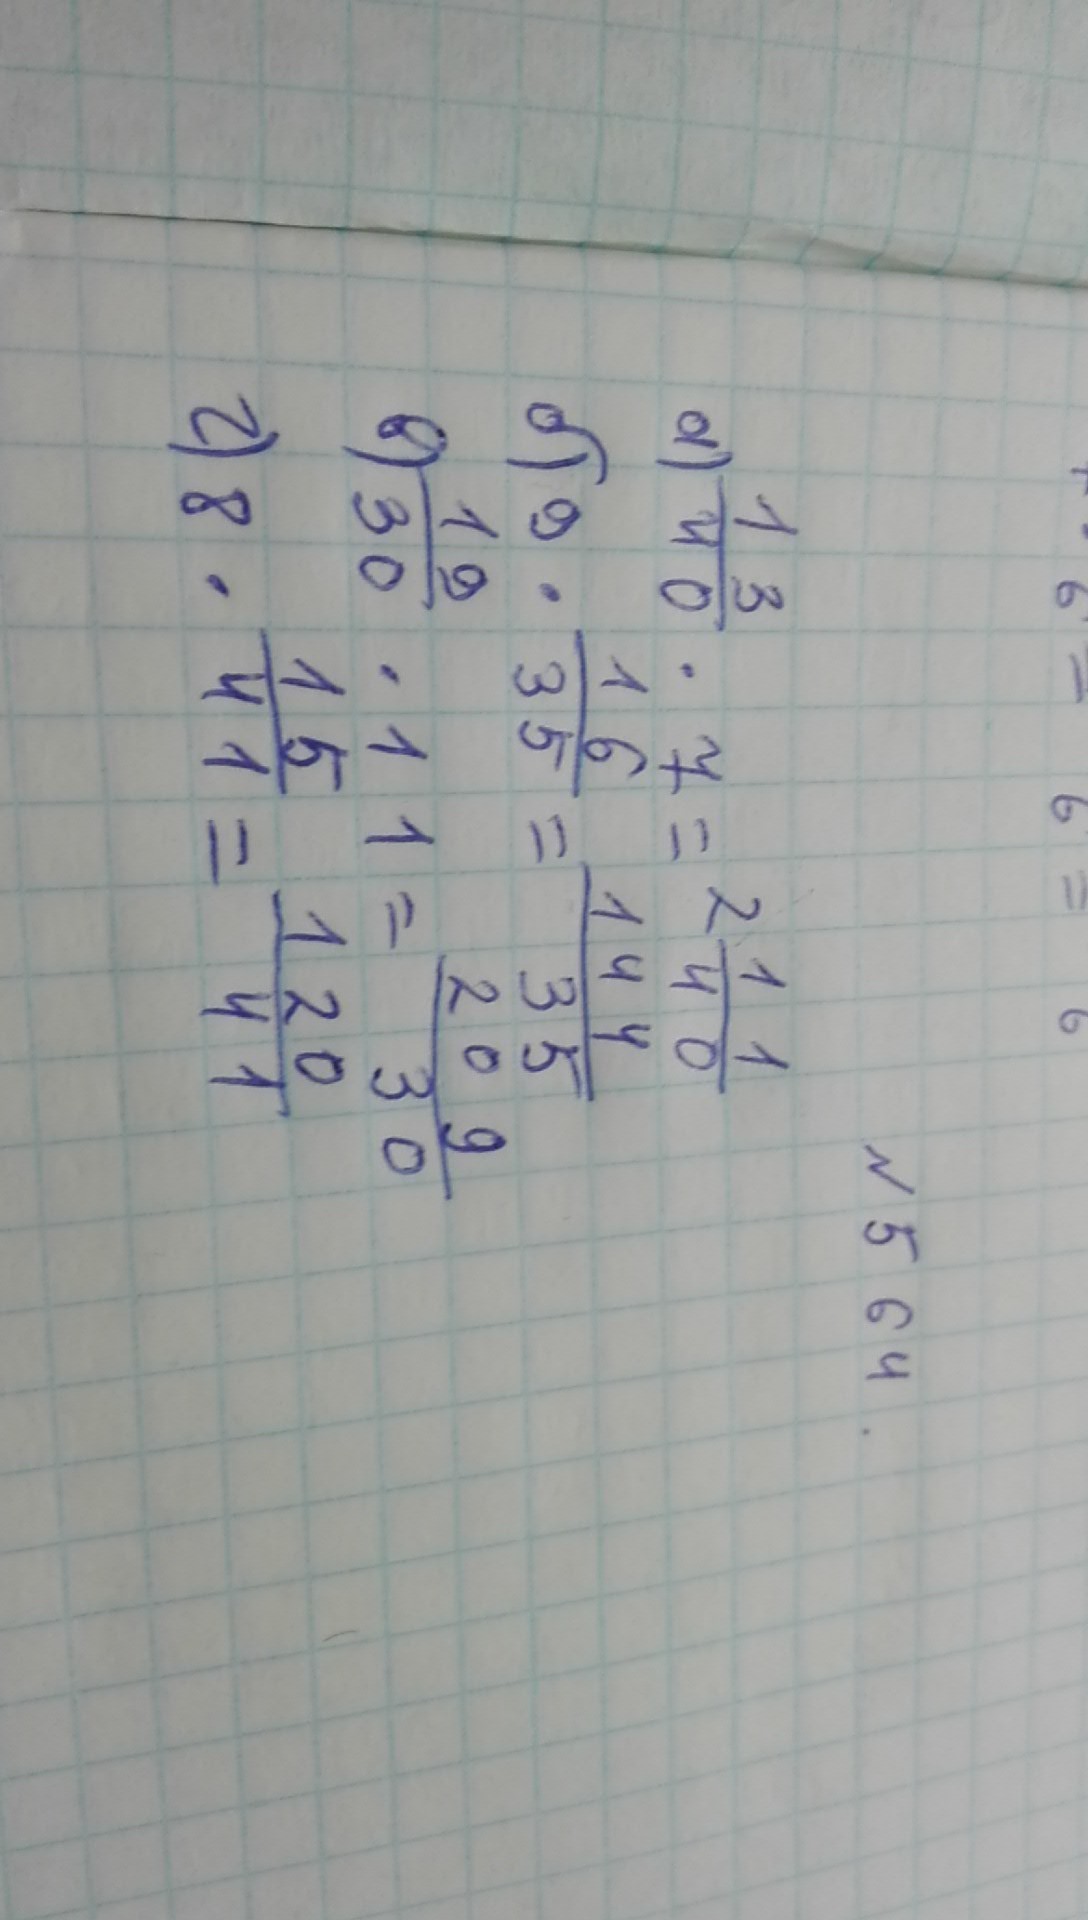 6 = 6 = 6
N 564.
а) 13/40 · 7 = 2 11/40
б) 9 · 16/35 = 144/35
в) 19/30 · 11 = 209/30
г) 8 · 15/41 = 120/41